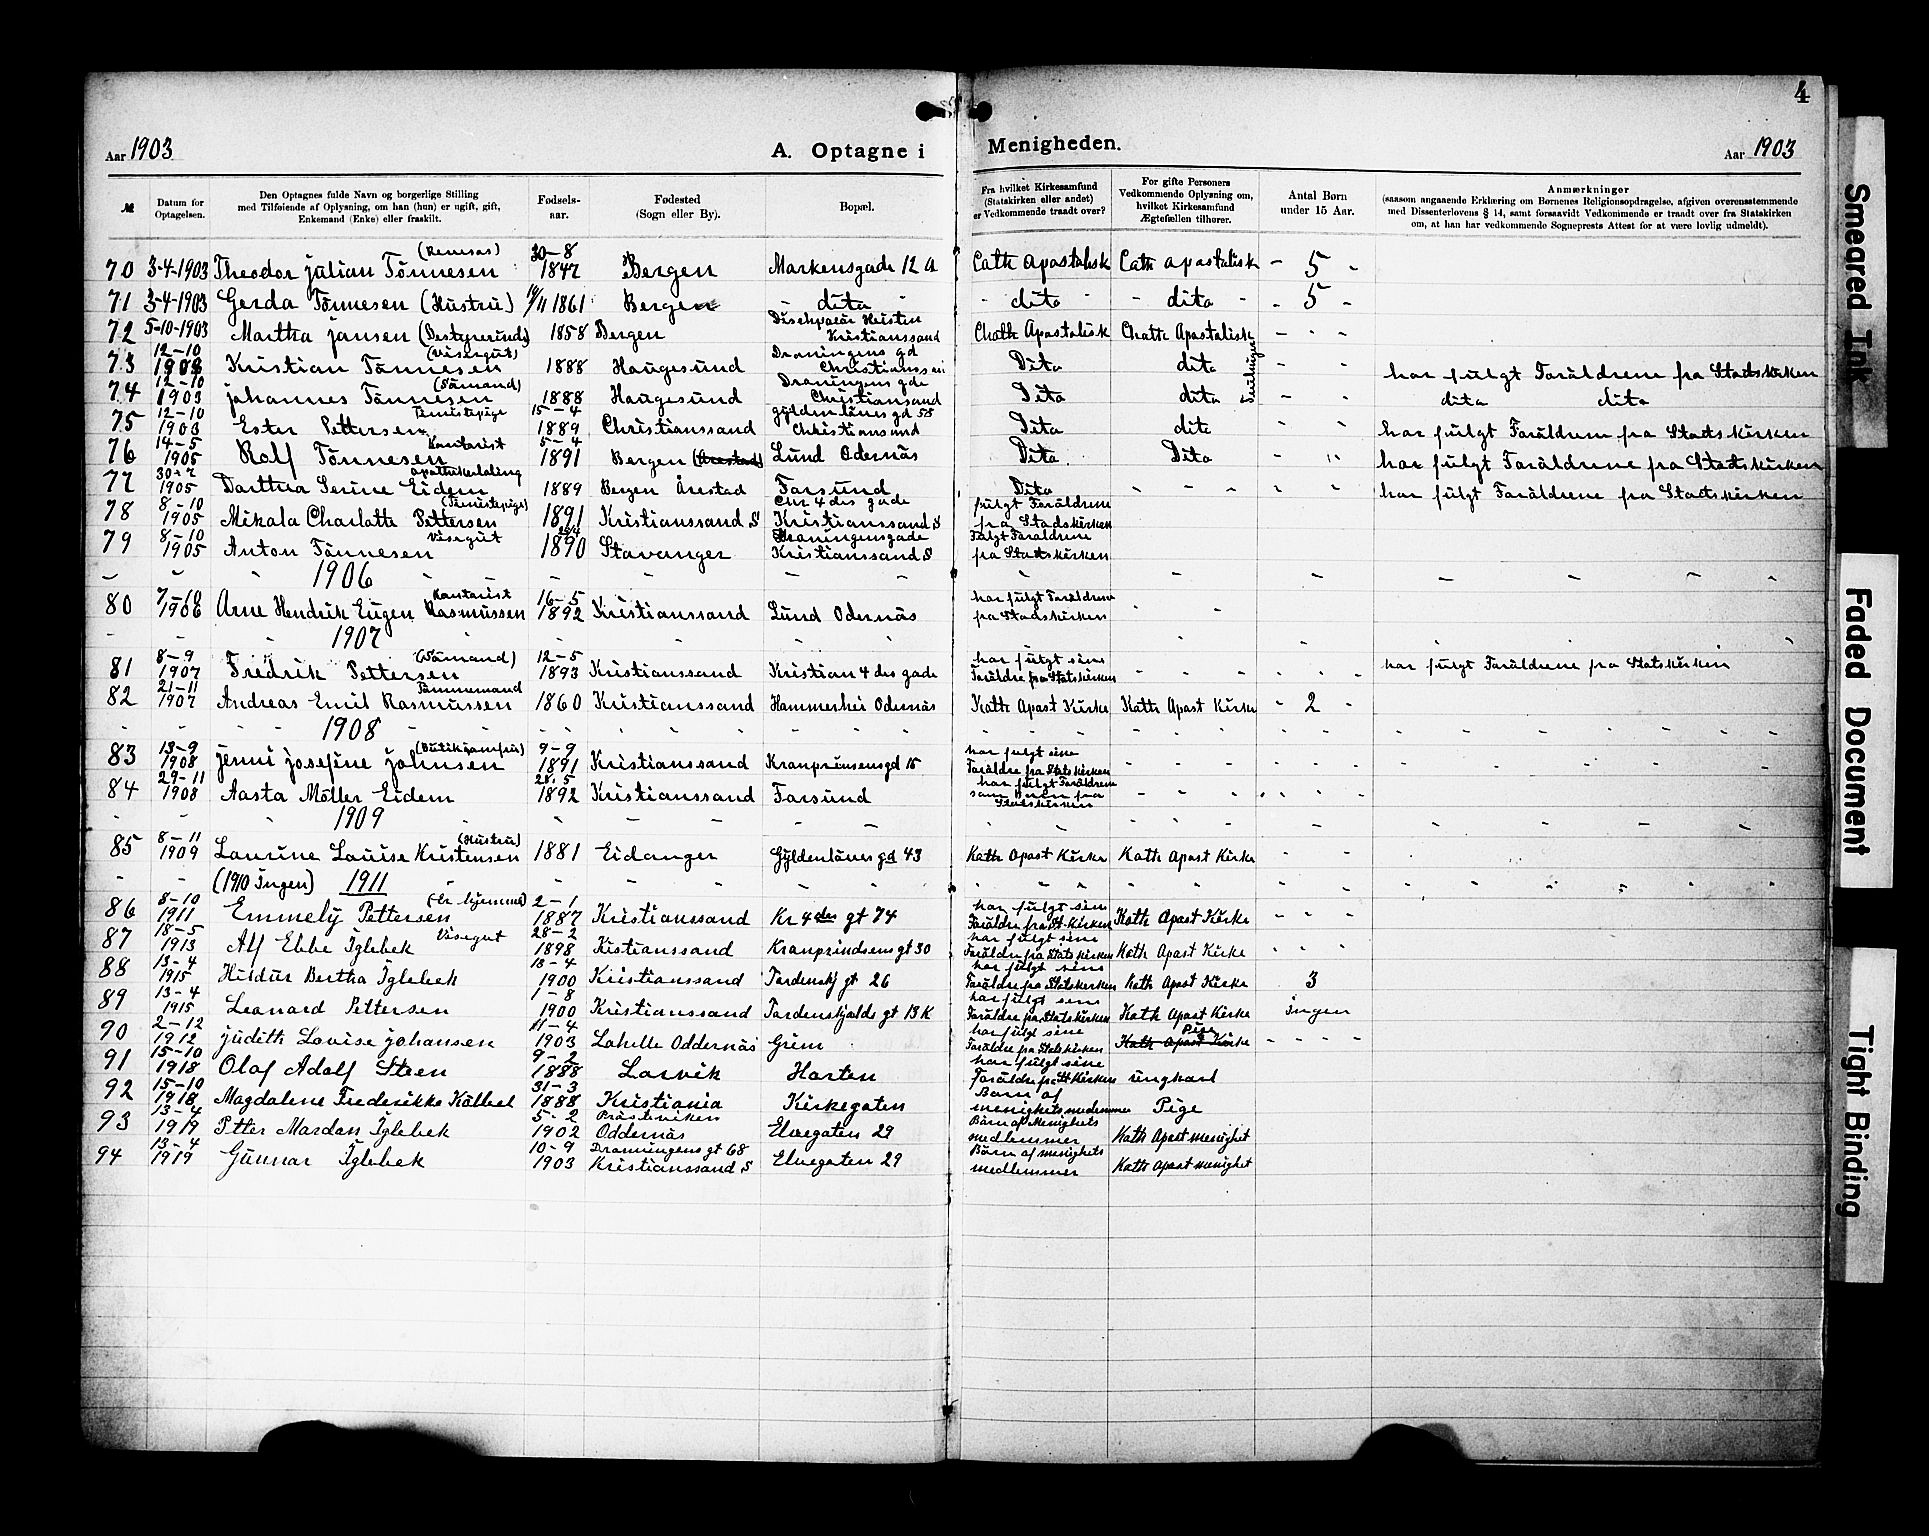 4
Aar 1903
A. Optagne i Menigheden.
Aar 1903
№
Datum for Optagelsen.
Den Optagnes fulde Navn og borgerlige Stilling
med Tilføiende af Oplysning, om han (hun) er ugift, gift,
Enkemand (Enke) eller fraskilt.
Fødsels-aar.
Fødested
(Sogn eller By).
Bopæl.
Fra hvilket Kirkesamfund
(Statskirken eller andet)
er Vedkommende traadt over?
For gifte Personers
Vedkommende Oplysning om,
hvilket Kirkesamfund
Ægtefællen tilhører.
Antal Børn
under 15 Aar.
Anmærkninger
(saasom angaaende Erklæring om Børnenes Religionsopdragelse, afgiven overensstemmende
med Dissenterlovens § 14, samt forsaavidt Vedkommende er traadt over fra Statskirken
om, at han har vedkommende Sogneprests Attest for at være lovlig udmeldt).
70 3-4-1903 Theodor julian Tönnesen 30-8 1847 Bergen Markensgade 12 a Cath Apostolisk Cath apostolisk - 5 -
71 3-4-1903 Gerda Tönnesen (Hustru) 1861 Bergen - dito - - dito - - dito - - 5 -
72 5-10-1903 Martha jansen (Bestyrerinde) 1858 Bergen Kristianssand Chath Apostolisk Chath Apostolisk - - -
73 12-10 Kristian Tönnesen (Visergut) 1888 Haugesund Droningens gd Dito dito - - har fulgt Foräldrene fra Stadskirken
74 12-10 1903 johannes Tönnesen (Sömand) 1888 Haugesund Droningens gde Christiansand Dito dito - - dito dito
75 12-10 Ester Pettersen Tjenistepige 15-4 1889 Christianssand Gyldenlöves gd 58 Christiansand Dito dito - - har fulgt Foräldrene fra Stadskirken
76 14-5 1905 Rolf Tönnesen Kontorist 5-4 1891 Bergen Lund Odernäs Dito Dito - " har fulgt Foräldrene fra Stadskirken
77 1905 Dorthea Serine Eidem 1889 Bergen Årestad Farsund Dito - - - - - har fulgt Foräldrene fra Stadskirken
78 8-10 1905 Mikala Charlotte Pettersen (Tjenistepige) 1891 Kristianssand S Chr 4 des gade Kristianssand S fulgt Foräldrene fra Stadskirken
79 8-10 1905 Anton Tönnesen Visergut 1890 Stavanger Droningensgade Kristianssand S Fulgt Foräldrene fra Stadskirken
1906
80 7-10 1906 Arne Hendrik Eugen Rasmussen Kontorist 16-5 1892 Kristianssand Lund Odernäs har fulgt Foräldrene fra Stadskirken - -
1907
81 8-9 1907 Fredrik Pettersen (Sömand) 12-5 1893 Kristianssand Kristian 4 des gade har fulgt sine Foräldre fra Statskirken - - - - - har fulgt Foräldrene fra Statskirken
82 21-11 1907 Andreas Emil Rasmussen Tömmermand 1860 Kristianssand Hammerhei Odernäs Kath Apost Kirke Kath Apost Kirke - 2 -
1908
83 13-9 1908 jenni josefine johnsen (Butikjomfru) 9-9 1891 Kristianssand Kronprinsensgd 15 har fulgt sine Foräldre fra Statskirken
84 29-11 1908 Aasta Möller Eidem 28-5 1892 Kristianssand Farsund har fulgt Foräldrene som Barn fra Stadskirken
1909
85 8-11 1909 Laurine Louise Kristensen (Hustru) 1881 Eidanger Gyldenlöves gd 43 Kath Apost Kirke Kath Apost Kirke - -
(1910 Ingen) 1911
86 8-10 1911 Emmely Pettersen (er hjemme) 2-1 1887 Kristianssand Kr 4 des gt 74 har fulgt sine Foräldre fra St. Kirken Kath Apost Kirke - - -
87 18-5 1913 Alf Ebbe Iglebek Visergut 28-2 1898 Kistianssand Kronprindsens gt 30 har fulgt sine Foräldre fra Stats kirken Kath Apost Kirke - - -
88 13-4 1915 Huldur Bertha Iglebek 13-4 1900 Kristianssand Tordenskj gt 26 har fulgt sine Foräldre fra Statskirken Kath Apost Kirke 3
89 13-4 1915 Leonard Pettersen 1-8 1900 Kristianssand Tordenskjolds gt 13 K har fulgt sine Foräldre fra Statskirken Kath Apost Kirke ingen
90 2-12 1912 judith Lovise johansen 11-4 1903 Lahelle Oddernäs Grim har fulgt sine Foräldre fra Statskirken Kath Apost Kirke Pige - - - -
91 15-10 1918 Olaf Adolf Steen 9-2 1888 Larvik Horten har fulgt sine Foräldre fra St Kirken ungkarl
92 15-10 1918 Magdalene Frederikke Kölbel 31-3 1888 Kristiania Kirkegaten Barn af menighetsmedemmer Pige
93 13-4 1919 Petter Mardon Iglebek 5-2 1902 Prästeviken Oddernäs Elvegaten 29 Börn af Menighets medlemmer Kath Apost menighet
94 13-4 1919 Gunnar Iglebek 10-9 1903 Dronningens gt 68 Kristianssand S Elvegaten 29 Börn af menighets medlemmer Kath Apost menighet
Smeared Ink
Faded Document
Tight Binding